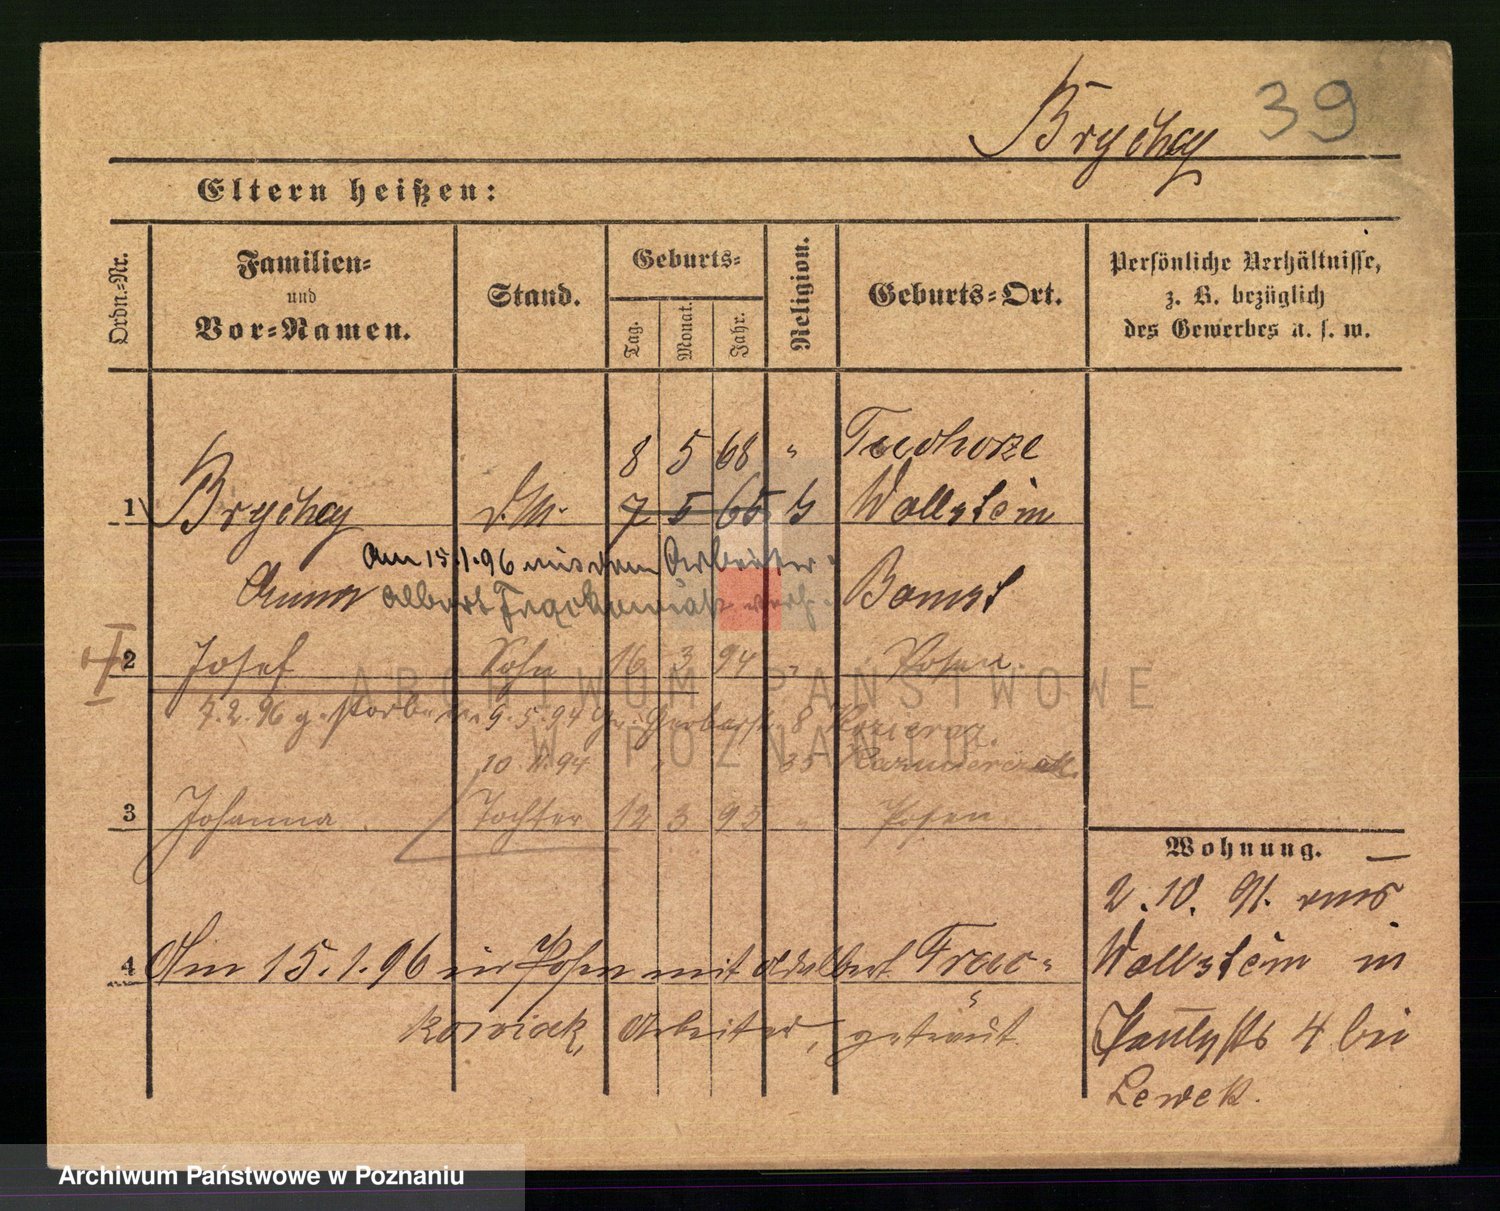 Brychcy 39
Eltern heißen:
Ordn.-Nr.
Familien-
und
Vor-Namen.
Stand.
Geburts-
Tag.
Monat.
Jahr.
Religion.
Geburts-Ort.
Persönliche Verhältnisse,
z. B. bezüglich
des Gewerbes u. s. w.
8 5 68 " Tuchorze
1 Brychcy 7 5 65 Wollstein
Am 15.1.96 mit dem Arbeiter
Anna Albert verh. Bomst
2 Josef Sohn 16 3 94 " Posen.
7.2.96 gestorben 9.5.94 8
10 94 " 35 Kazmierczak.
3 Johanna Tochter 12 3 95 " Posen
Wohnung.
2.10.91. aus
4 Am 15.1.96 in Posen mit Adalbert Frac- Wollstein in
kowiak, Arbeiter, getraut. Paulystr 4 bei
Lewek.
ARCHIWUM PAŃSTWOWE
W POZNANIU
Archiwum Państwowe w Poznaniu